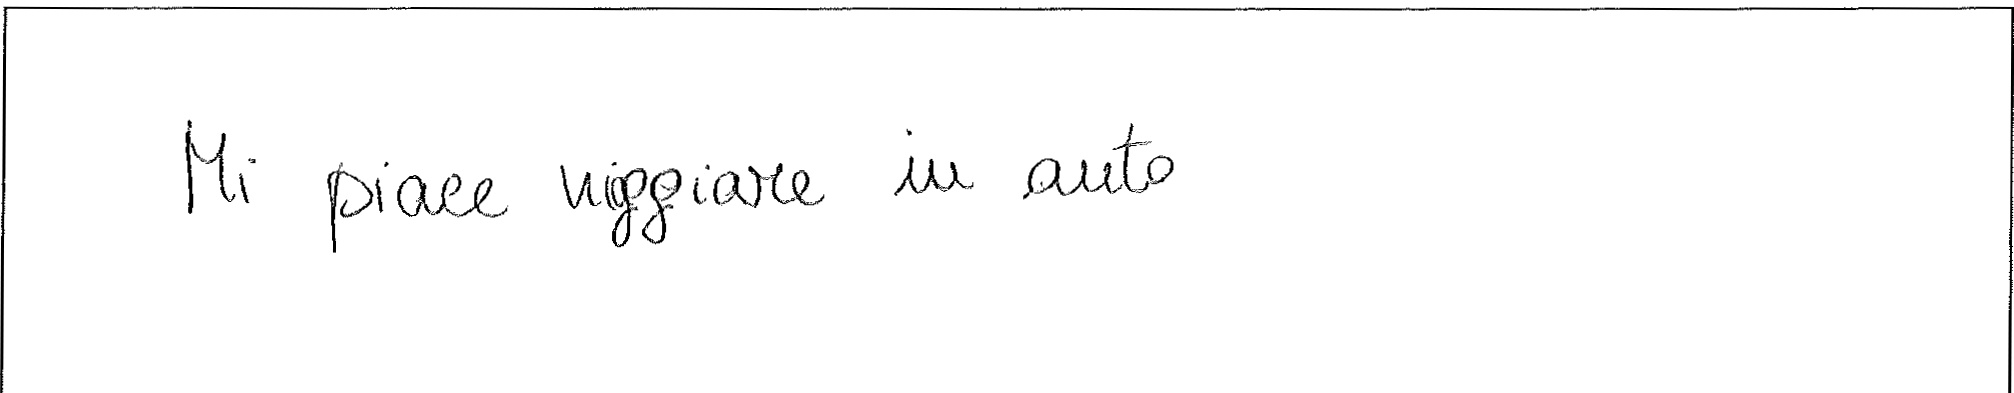 Mi piace viggiare in auto